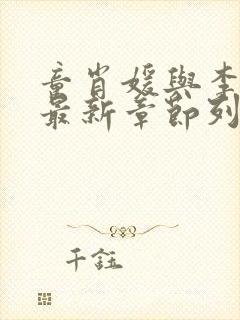 童肖媛與李
最新章節列
千鈺